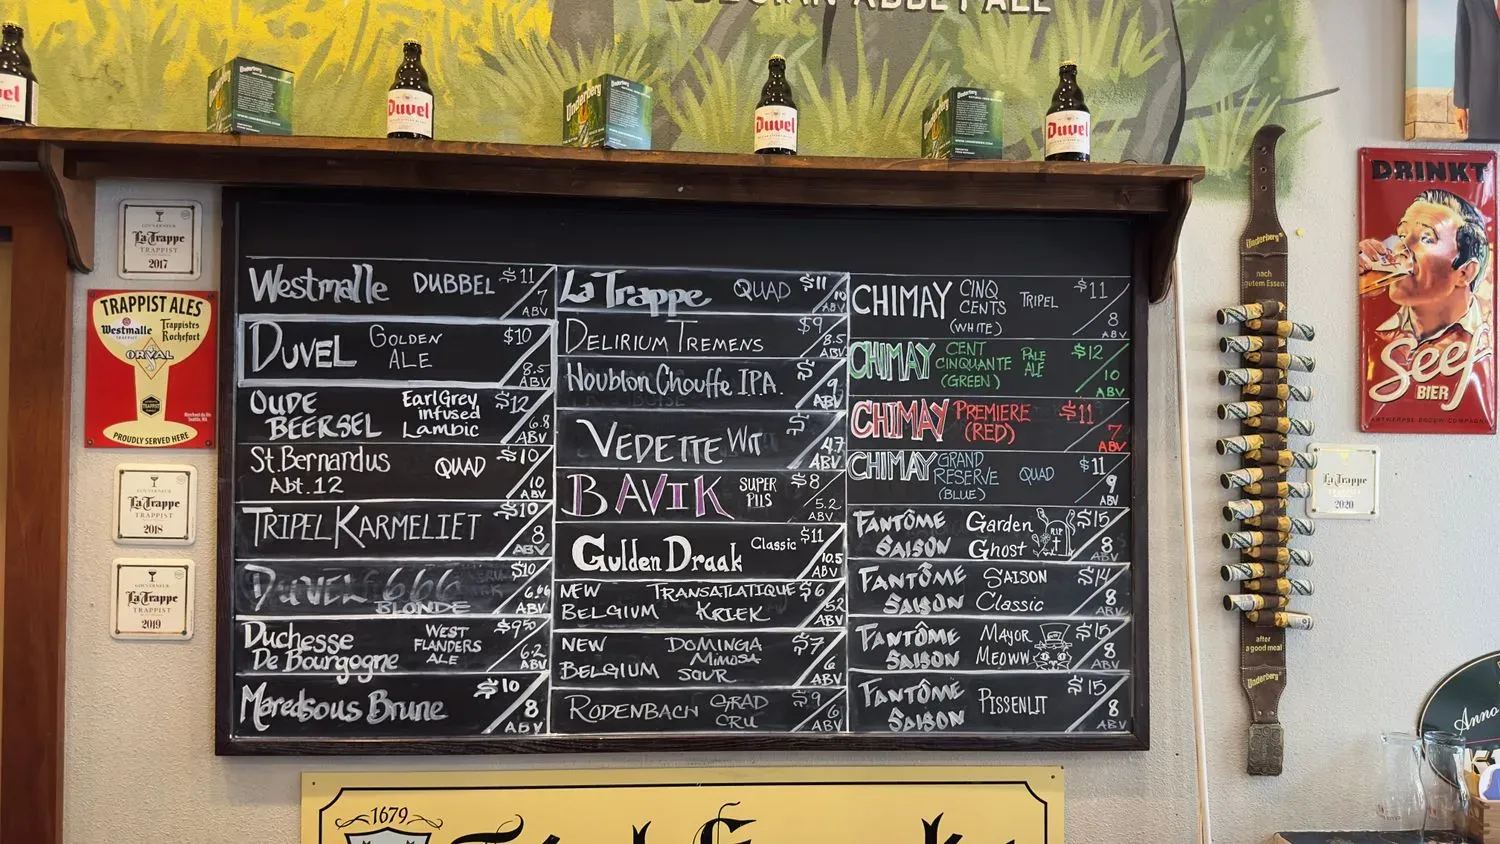 BELGIAN ABBEY ALE
Duvel
Underberg
Duvel
Underberg
Duvel
Underberg
Duvel
La Trappe
TRAPPIST
2017
TRAPPIST ALES
Westmalle
Trappistes
Rochefort
ORVAL
PROUDLY SERVED HERE
La Trappe
TRAPPIST
2018
La Trappe
TRAPPIST
2019
Westmalle DUBBEL $11
7
ABV
DUVEL GOLDEN ALE $10
8.5
ABV
OUDE BEERSEL Earl Grey infused Lambic $12
6.8
ABV
St. Bernardus Abt. 12 QUAD $10
10
ABV
TRIPEL KARMELIET $10
8
ABV
DUVEL 666 BLONDE $10
6.66
ABV
Duchesse De Bourgogne WEST FLANDERS ALE $9.50
6.2
ABV
Maredsous Brune $10
8
ABV
La Trappe QUAD $11
10
ABV
DELIRIUM TREMENS $9
8.5
ABV
Houblon Chouffe I.P.A.
9
ABV
VEDETTE WIT
4.7
ABV
BAVIK SUPER PILS $8
5.2
ABV
Gulden Draak Classic $11
10.5
ABV
NEW BELGIUM TRANSATLATIQUE KRIEK $6
5.2
ABV
NEW BELGIUM DOMINGA MIMOSA SOUR $7
6
ABV
RODENBACH GRAD CRU $9
6
ABV
CHIMAY CINQ CENTS (WHITE) TRIPEL $11
8
ABV
CHIMAY CENT CINQUANTE (GREEN) PALE ALE $12
10
ABV
CHIMAY PREMIERE (RED) $11
7
ABV
CHIMAY GRAND RESERVE (BLUE) QUAD $11
9
ABV
FANTÔME SAISON Garden Ghost RIP $15
8
ABV
FANTÔME SAISON SAISON Classic $14
8
ABV
FANTÔME SAISON MAYOR MEOWW $15
8
ABV
FANTÔME SAISON PISSENLIT $15
8
ABV
1679
Underberg
nach
gutem Essen
after
a good meal
Underberg
DRINKT
Seef
BIER
ANTWERPSE BROUW COMPAGNY
La Trappe
2020
Anno